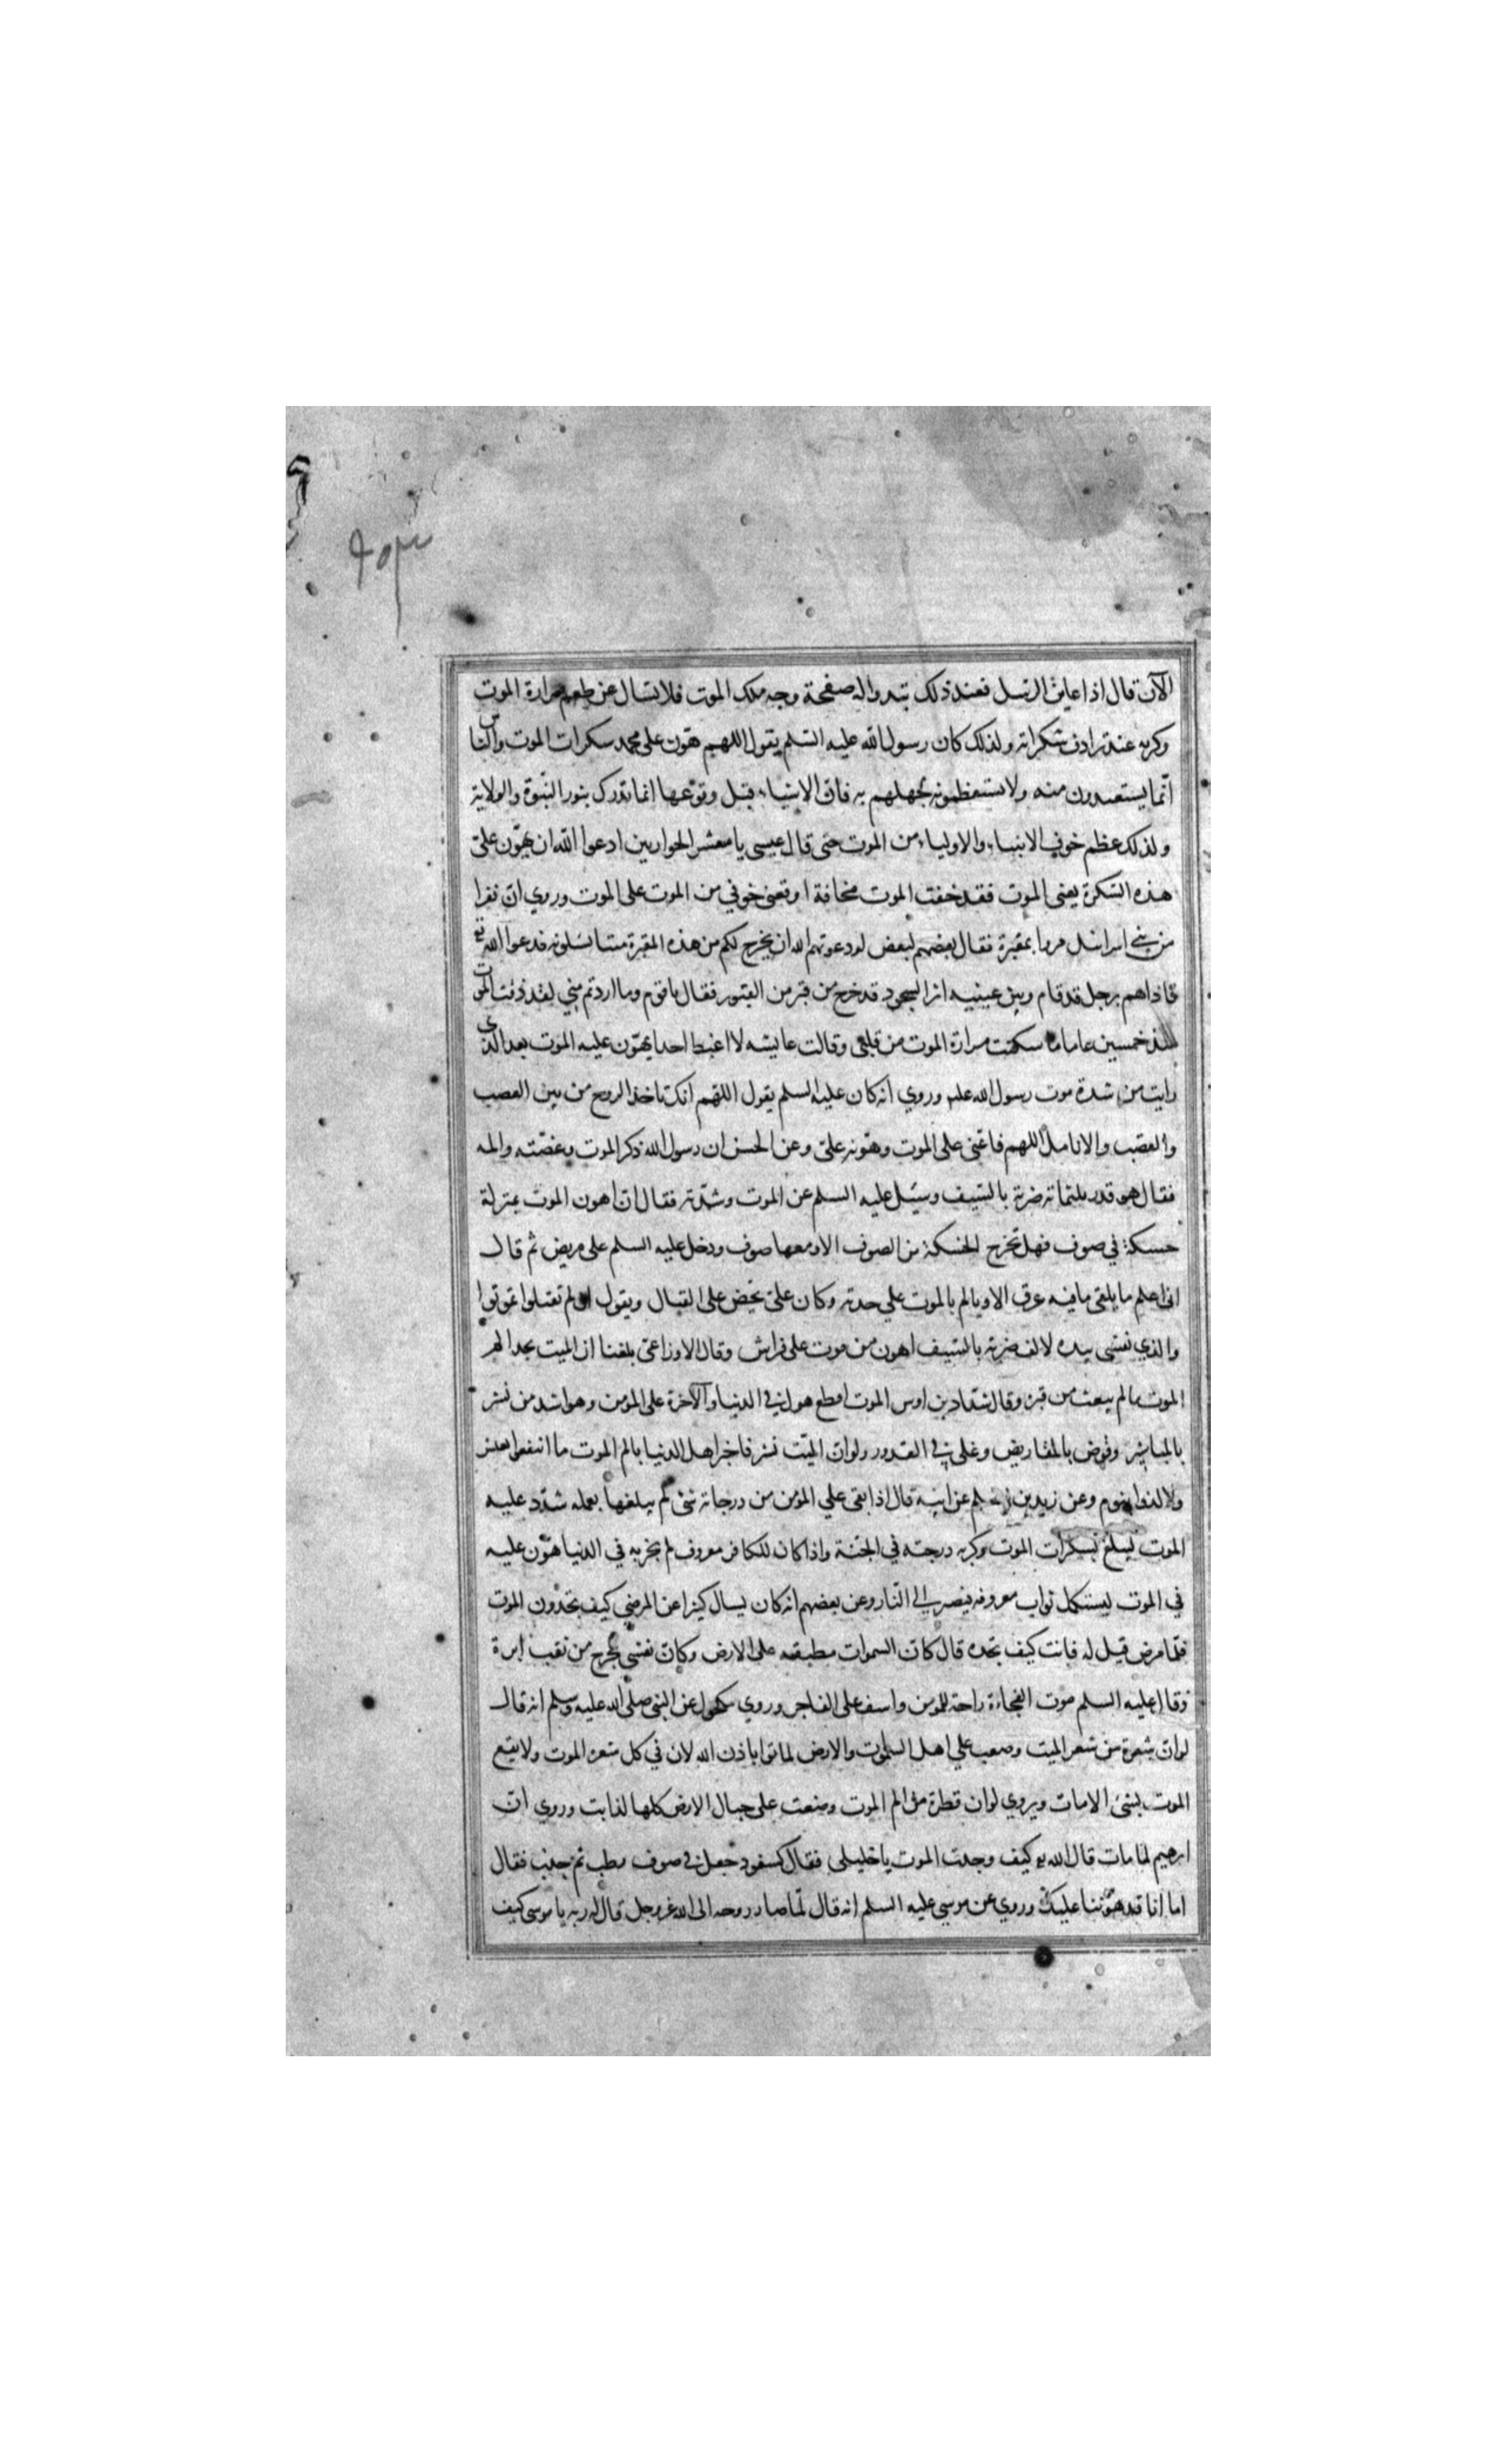 ٦٥٣
الآن قال اذا عاين الرسل فعند ذلك تبدو اله صفحة وجه ملك الموت فلا تسال عن طعم مرارة الموت
وكربه عند ترادف سكراته ولذلك كان رسول الله عليه السلم يقول اللهم هوّن على محمد سكرات الموت والناس
انّما يستعيدون منه ولا يستعظمونه لجهلهم به فان الاشياء قبل وقوعها انما تدرك بنور النبوة والولاية
ولذلك عظم خوف الانبياء والاولياء من الموت حتى قال عيسى يا معشر الحواريين ادعوا الله ان يهوّن علىّ
هذه السكرة يعنى الموت فقد خفت الموت مخافة اوقعنى خوفي من الموت على الموت وروي ان نفرا
من بني اسرائيل مروا بمقبرة فقال بعضهم لبعض لو دعوتم الله ان يخرج لكم من هذه المقبرة ميتا تسلونه فدعوا الله تع
فاذا هم برجل قد قام وبين عينيه اثر السجود قد خرج من قبر من القبور فقال يا قوم وما اردتم مني لقد ذقت الموت
منذ خمسين عاما ما سكنت مرارة الموت من قلبى وقالت عايشه لا اغبط احدا يهوّن عليه الموت بعد الذي
رايت من شدة موت رسول الله علم وروي انه كان عليه السلم يقول اللهم انك تاخذ الروح من بين العصب
والقصب والانامل اللهم فاعنى على الموت وهونه علىّ وعن الحسن ان رسول الله ذكر الموت وغصّته والمه
فقال هو قدر ثلثماته ضربة بالسيف وسيل عليه السلم عن الموت وشدّته فقال ان اهون الموت بمنزلة
حسكة في صوف فهل تخرج الحسكة من الصوف الا ومعها صوف ودخل عليه السلم على مريض ثم قال
انى اعلم ما يلقى ما فيه عرق الا ويالم بالموت علي حدته وكان علىّ يحض على القتال ويقول ان لم تقتلوا تموتوا
والذي نفسى بيده لالف ضربة بالسيف اهون من موت على فراش وقال الاوزاعى بلغنا ان الميت يجد الم
الموت ما لم يبعث من قبره وقال شداد بن اوس الموت افظع هول في الدنيا والآخرة على المؤمن وهو اشد من نشر
بالمناشير وقرض بالمقاريض وغلى في القدور ولو ان الميّت نشر فاخبر اهل الدنيا بالم الموت ما انتفعوا بعيش
ولا لذوا بنوم وعن زيد بن اسلم عن ابيه قال اذا بقى علي المؤمن من درجاته شئ لم يبلغها بعمله شدّد عليه
الموت ليبلغ بسكرات الموت وكربه درجته في الجنة واذا كان للكافر معروف لم يجز به في الدنيا هوّن عليه
في الموت ليستكمل ثواب معروفه فيصير الى النار وعن بعضهم انه كان يسال كثيرا عن المرضي كيف تجدون الموت
فلمّا مرض قيل له فانت كيف تجده قال كان السموات مطبقه على الارض وكان نفسي يخرج من ثقب ابرة
وقال عليه السلم موت الفجاءة راحة للمؤمن واسف على الفاجر وروي مكحول عن النبى صلى الله عليه وسلم انه قال
لو ان شعرة من شعر الميت وضع علي اهل السموات والارض لماتوا باذن الله لان في كل شعره الموت ولا يقع
الموت بشئ الا مات ويروى لو ان قطرة من الم الموت وضعت على جبال الارض كلها لذابت وروي ان
ابرهيم لما مات قال الله له كيف وجدت الموت يا خليلى فقال كسفود جعل في صوف رطب ثم جذب فقال
اما انا قد هوّننا عليك وروي عن موسي عليه السلم انه قال لمّا صار روحه الى الله عز وجل قال له ربه يا موسى كيف